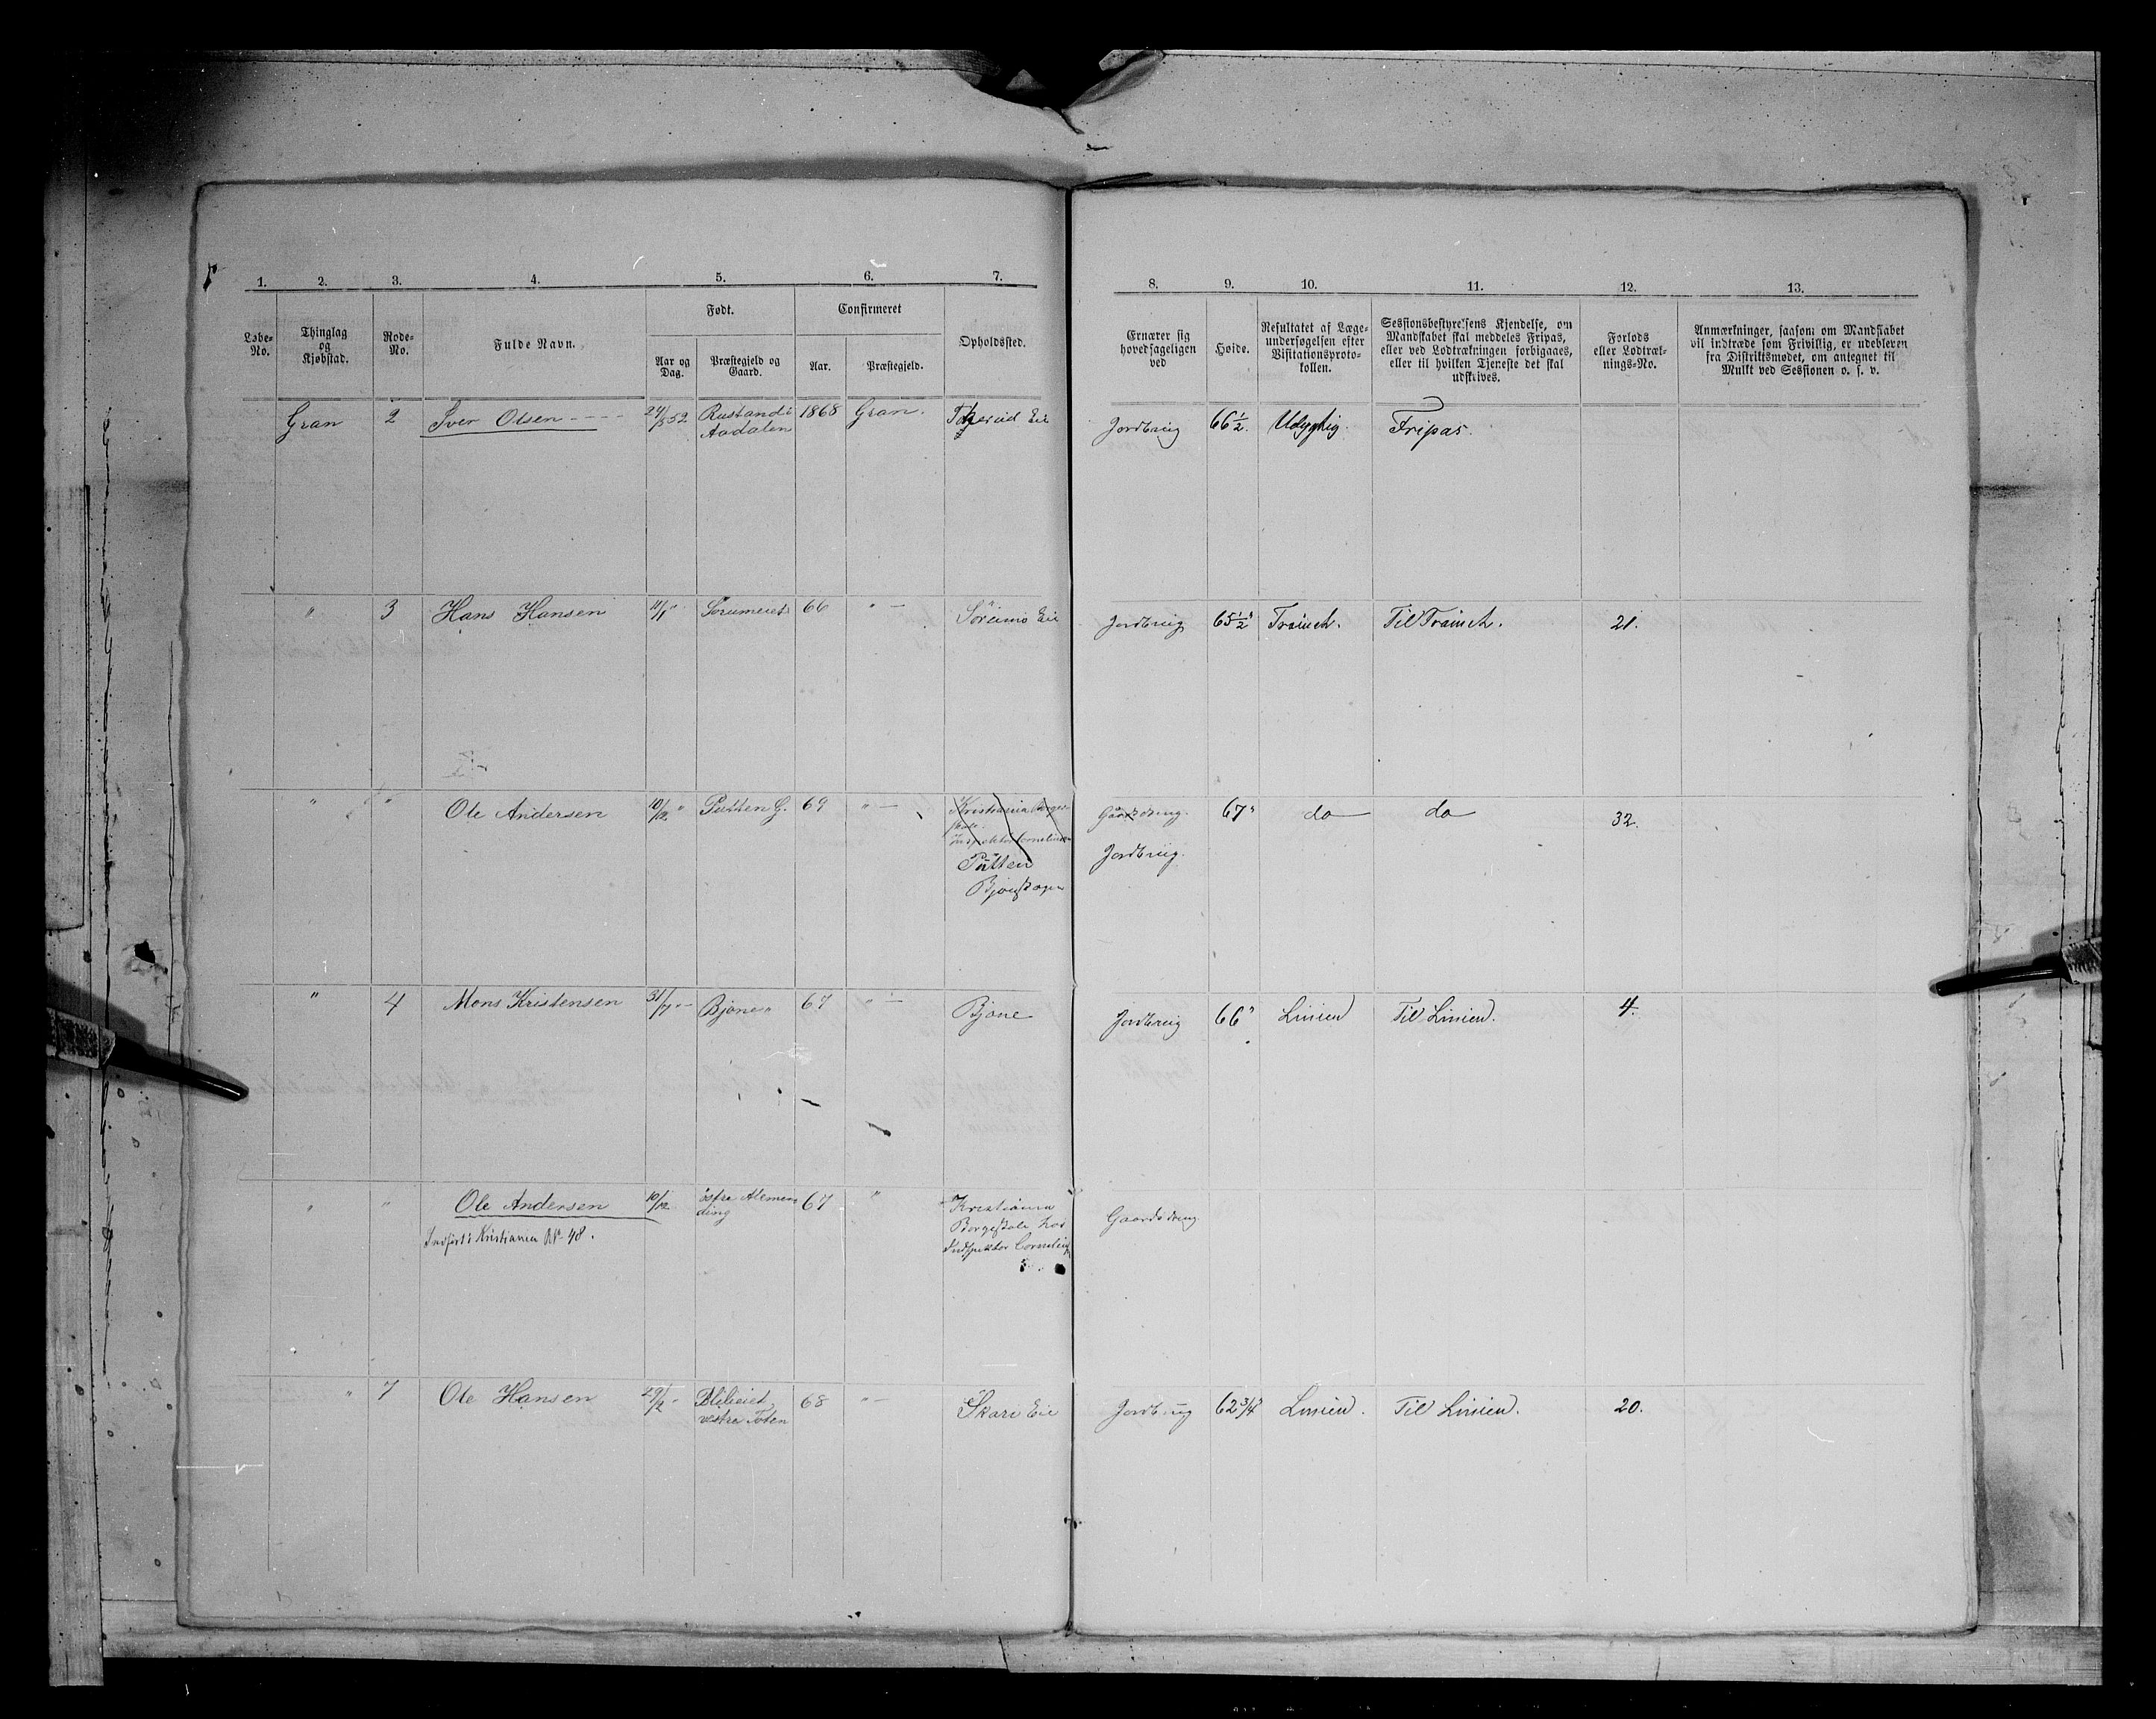 1. 2. 3. 4. 5. 6. 7. 8. 9. 10. 11. 12. 13.
Løbe-No.
Thinglag og Kjøbstad.
Rode-No.
Fulde Navn.
Født.
Aar og Dag.
Præstegjeld og Gaard.
Confirmeret
Aar.
Præstegjeld.
Opholdssted.
Ernærer sig hovedsageligen ved
Høide.
Resultatet af Læge-undersøgelsen efter Visitationsproto-kollen.
Sessionsbestyrelsens Kjendelse, om Mandskabet skal meddeles Fripas, eller ved Lodtrækningen forbigaaes, eller til hvilken Tjeneste det skal udskrives.
Forlods eller Lodtræk-nings-No.
Anmærkninger, saasom om Mandskabet vil indtræde som Frivillig, er udebleven fra Distriktsmødet, om antegnet til Mulkt ved Sessionen o. s. v.
Gran 2 Iver Olsen 24/5 52 Rustand i 1868 Gran. Eie Jordbrug 66½ Udygtig. Fripas.
Aadalen
" 3 Hans Hansen 11/1 " Sorumeiet 66 " — Söeimo Eie Jordbrug 65½" Trainet. Til Trainet. 21.
" " Ole Andersen 10/12 " Putten G. 69 " — Kristiania Gårdsdreng. 67" do do 32.
Inspektor Cornelius
Putten Jordbrug.
Bjoneskogen
" 4 Mons Kristensen 31/7 " — Bjone " 67 " — Bjone Jordbrug 66" Linien Til Linien. 4.
" " Ole Andersen 10/12 östre Alemen 67 " Kristiania Gaardsdreng
ding
Indført i Kristiania No 48.
Borgeskole hos
Indspektor Cornelius
" 7 Ole Hansen 29/2 - Blilieiet 68 " — Skari Eie Jordbrug 62¾" Linien. Til Linien. 20.
vestre Toten